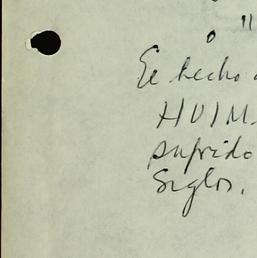 El hecho
HUIM
sufrido
Siglos.